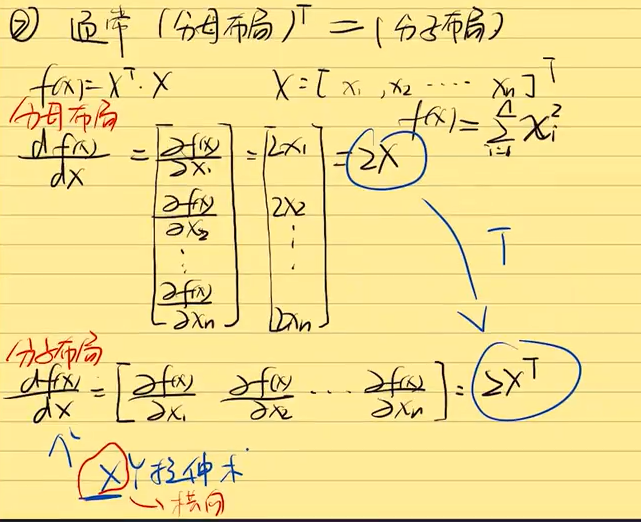 ② 通常 (分母布局)ᵀ = (分子布局)
f(x)=Xᵀ·X X=[x₁,x₂ ‥‥ xₙ]ᵀ
分母布局 f(x)=∑ᵢ₌₁ⁿ xᵢ²
df(x)/dX = [∂f(x)/∂x₁ ∂f(x)/∂x₂ ⋮ ∂f(x)/∂xₙ] = [2x₁ 2x₂ ⋮ 2xₙ] = 2X
T
分子布局
df(x)/dx = [∂f(x)/∂x₁ ∂f(x)/∂x₂ ⋯ ∂f(x)/∂xₙ] = 2Xᵀ
XY拉伸术
横向